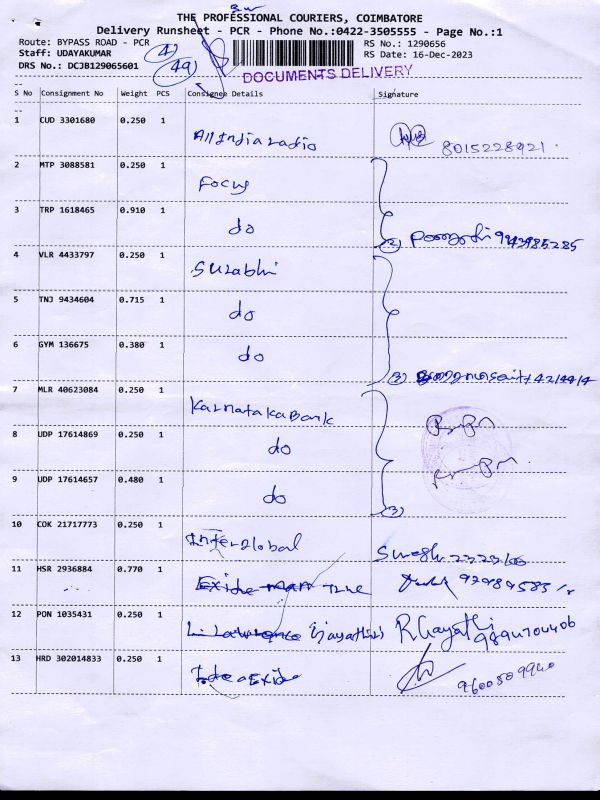 THE PROFESSIONAL COURIERS, COIMBATORE
Delivery Runsheet - PCR - Phone No.:0422-3505555 - Page No.:1
Route: BYPASS ROAD - PCR
RS No.: 1290656
Staff: UDAYAKUMAR
RS Date: 16-Dec-2023
DRS No.: DCJB129065601
49
DOCUMENTS DELIVERY
S No Consignment No Weight PCS Consignee Details Signature
1 CUD 3301680 0.250 1
All India radio 8015228921
2 MTP 3088581 0.250 1
Focus
3 TRP 1618465 0.910 1
do
4 VLR 4433797 0.250 1
Surabhi
5 TNJ 9434604 0.715 1
do
6 GYM 136675 0.380 1
do
7 MLR 40623084 0.250 1
Karnataka Bank
8 UDP 17614869 0.250 1
do
9 UDP 17614657 0.480 1
do
10 COK 21717773 0.250 1
Interglobal
11 HSR 2936884 0.770 1
Exide
12 PON 1035431 0.250 1
R Gayathri
13 HRD 302014833 0.250 1
Exide